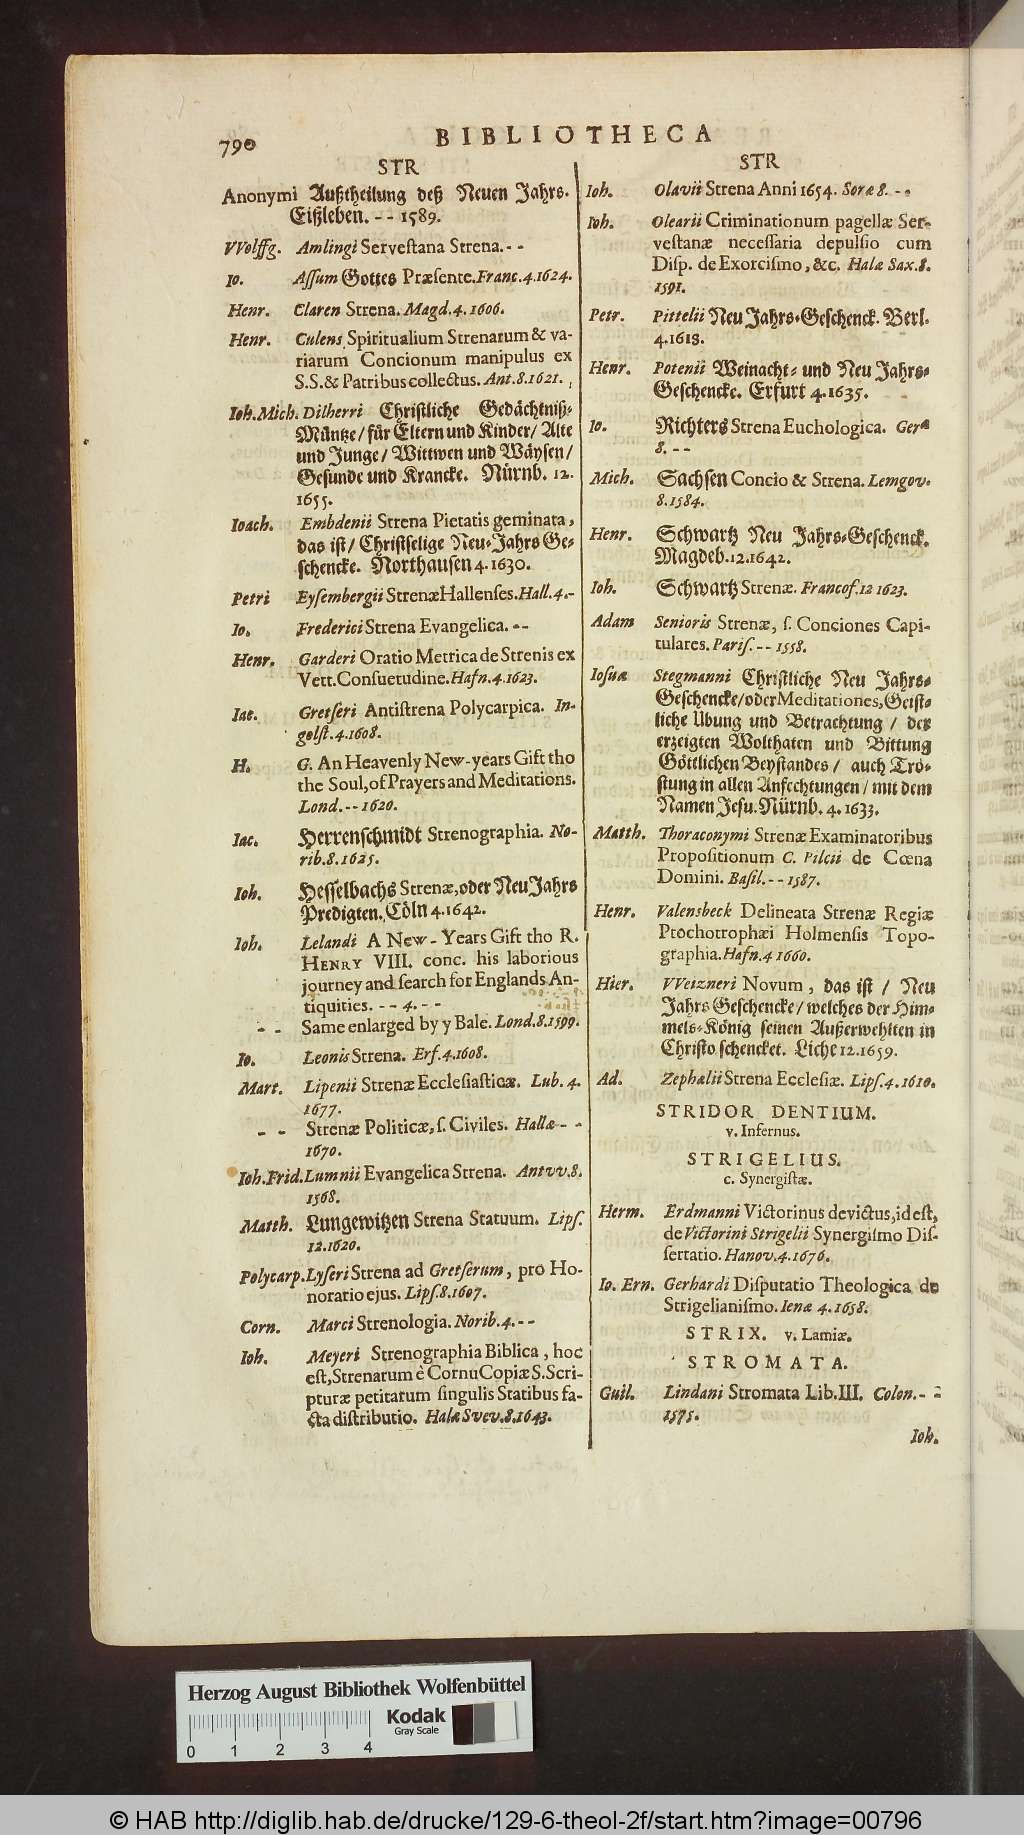 790 BIBLIOTHECA
STR
Anonymi Außtheilung deß Neuen Jahrs.
Eißleben. - - 1589.
VVolffg. Amlingi Servestana Strena. - -
Io. Assum Gottes Præsente. Franc. 4. 1624.
Henr. Claren Strena. Magd. 4. 1606.
Henr. Culens Spiritualium Strenarum & va-
riarum Concionum manipulus ex
S.S. & Patribus collectus. Ant. 8. 1621.
Ioh. Mich. Dilherri Christliche Gedächtniß-
Müntze / für Eltern und Kinder / Alte
und Junge / Wittwen und Wäysen /
Gesunde und Krancke. Nürnb. 12.
1655.
Ioach. Embdenii Strena Pietatis geminata,
das ist / Christselige Neu-Jahrs Ge-
schencke. Northausen 4. 1630.
Petri Eysembergii Strenæ Hallenses. Hall. 4. -
Io. Frederici Strena Evangelica. - -
Henr. Garderi Oratio Metrica de Strenis ex
Vett. Consuetudine. Hafn. 4. 1623.
Iac. Gretseri Antistrena Polycarpica. In-
golst. 4. 1608.
H. G. An Heavenly New-years Gift tho
the Soul, of Prayers and Meditations.
Lond. - - 1620.
Iac. Herrenschmidt Strenographia. No-
rib. 8. 1625.
Ioh. Hesselbachs Strenæ, oder Neu Jahrs
Predigten. Cöln 4. 1642.
Ioh. Lelandi A New-Years Gift tho R.
HENRY VIII. conc. his laborious
journey and search for Englands An-
tiquities. - - 4. - -
- - Same enlarged by y Bale. Lond. 8. 1599.
Io. Leonis Strena. Erf. 4. 1608.
Mart. Lipenii Strenæ Ecclesiasticæ. Lub. 4.
1677.
- - Strenæ Politicæ, s. Civiles. Hallæ - -
1670.
Ioh. Frid. Lumnii Evangelica Strena. Antvv. 8.
1568.
Matth. Lungewitzen Strena Statuum. Lips.
12. 1620.
Polycarp. Lyseri Strena ad Gretserum, pro Ho-
noratio ejus. Lips. 8. 1607.
Corn. Marci Strenologia. Norib. 4. - -
Ioh. Meyeri Strenographia Biblica, hoc
est, Strenarum è Cornu Copiæ S. Scri-
pturæ petitarum singulis Statibus fa-
cta distributio. Halæ Svev. 8. 1643.
STR
Ioh. Olavii Strena Anni 1654. Soræ 8. - -
Ioh. Olearii Criminationum pagellæ Ser-
vestanæ necessaria depulsio cum
Disp. de Exorcismo, &c. Halæ Sax. 8.
1591.
Petr. Pittelii Neu Jahrs-Geschenck. Berl.
4. 1618.
Henr. Potenii Weinacht- und Neu Jahrs-
Geschencke. Erfurt 4. 1635.
Io. Richters Strena Euchologica. Geræ
8. - -
Mich. Sachsen Concio & Strena. Lemgov.
8. 1584.
Henr. Schwartz Neu Jahrs-Geschenck.
Magdeb. 12. 1642.
Ioh. Schwartz Strenæ. Francof. 12 1623.
Adam Senioris Strenæ, s. Conciones Capi-
tulares. Paris. - - 1558.
Iosuæ Stegmanni Christliche Neu Jahrs-
Geschencke / oder Meditationes, Geist-
liche Übung und Betrachtung / der
erzeigten Wolthaten und Bittung
Göttlichen Beystandes / auch Trö-
stung in allen Anfechtungen / mit dem
Namen Jesu. Nürnb. 4. 1633.
Matth. Thoraconymi Strenæ Examinatoribus
Propositionum C. Pilcii de Cœna
Domini. Basil. - - 1587.
Henr. Valensbeck Delineata Strenæ Regiæ
Ptochotrophæi Holmensis Topo-
graphia. Hafn. 4 1660.
Hier. VVeizneri Novum, das ist / Neu
Jahrs Geschencke / welches der Him-
mels-König seinen Außerwehlten in
Christo schencket. Liche 12. 1659.
Ad. Zephalii Strena Ecclesiæ. Lips. 4. 1610.
STRIDOR DENTIUM.
v. Infernus.
STRIGELIUS.
c. Synergistæ.
Herm. Erdmanni Victorinus devictus, id est,
de Victorini Strigelii Synergismo Dis-
sertatio. Hanov. 4. 1676.
Io. Ern. Gerhardi Disputatio Theologica de
Strigelianismo. Ienæ 4. 1658.
STRIX. v. Lamiæ.
STROMATA.
Guil. Lindani Stromata Lib. III. Colon. - -
1575.
Ioh.
Herzog August Bibliothek Wolfenbüttel
Kodak
Gray Scale
0 1 2 3 4
© HAB http://diglib.hab.de/drucke/129-6-theol-2f/start.htm?image=00796